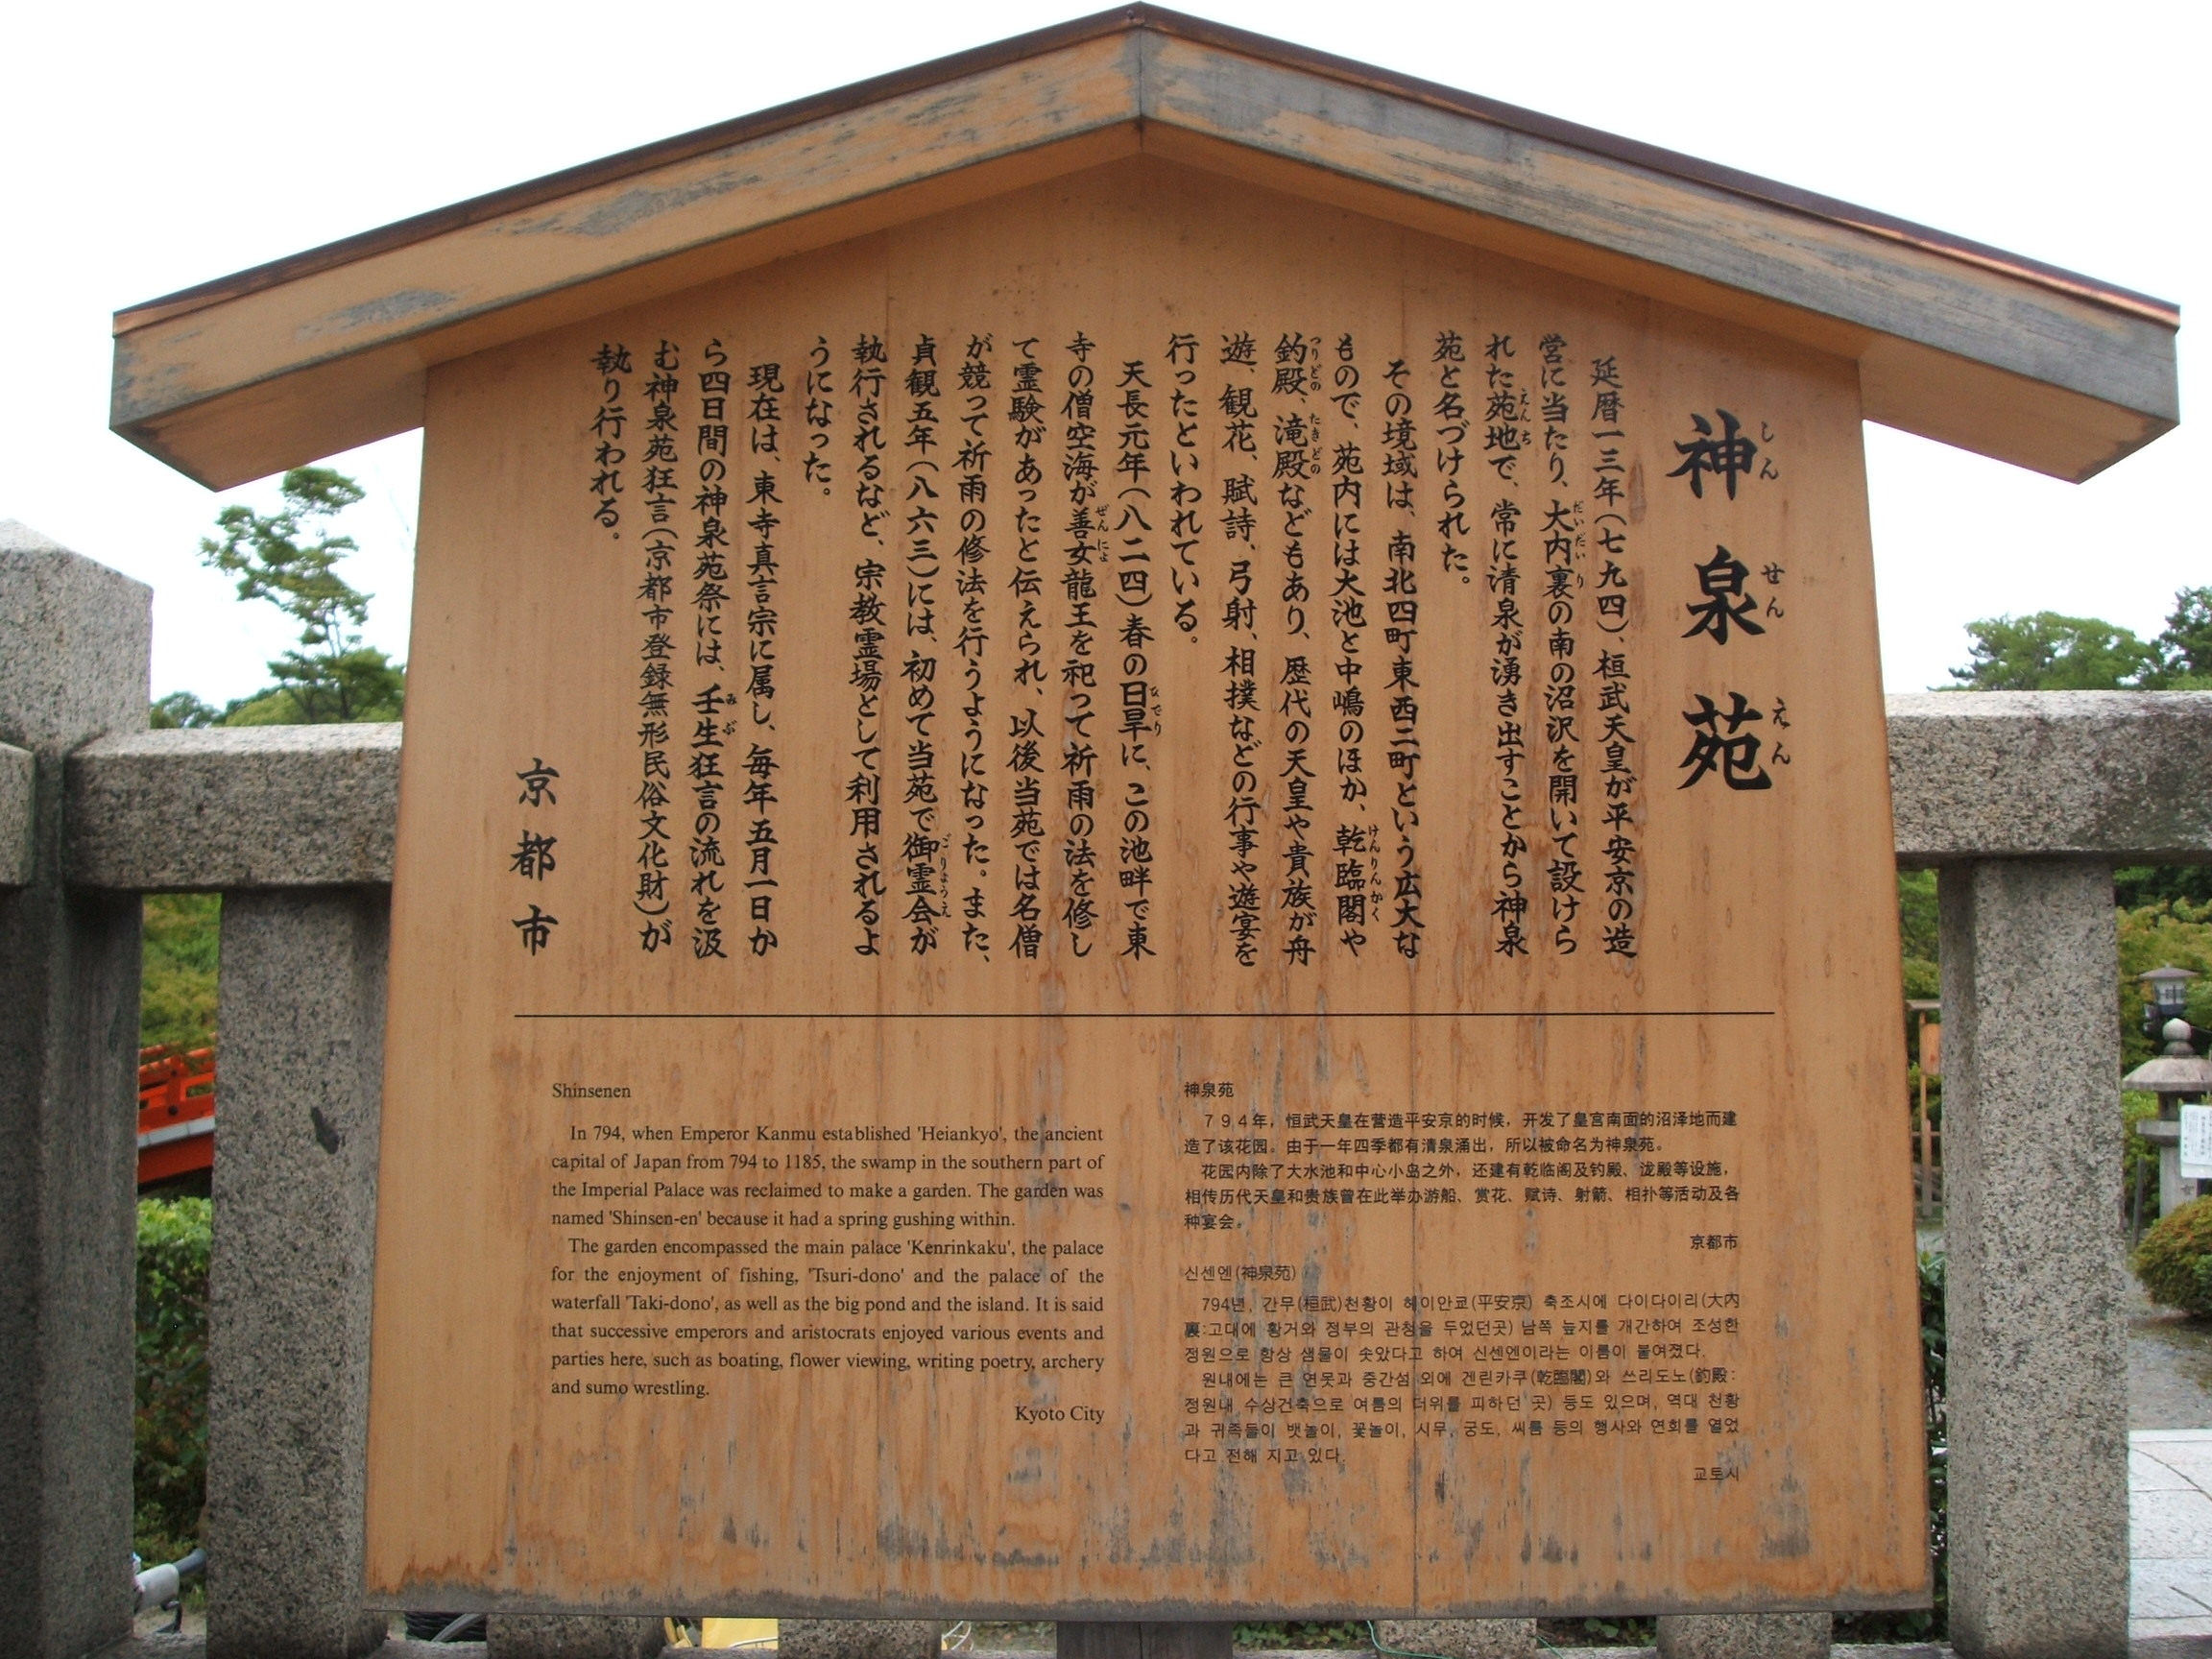 神泉苑
しんせんえん
延暦一三年(七九四)、桓武天皇が平安京の造
営に当たり、大内裏の南の沼沢を開いて設けら
れた苑地で、常に清泉が湧き出すことから神泉
苑と名づけられた。
その境域は、南北四町東西二町という広大な
もので、苑内には大池と中嶋のほか、乾臨閣や
釣殿、滝殿などもあり、歴代の天皇や貴族が舟
遊、観花、賦詩、弓射、相撲などの行事や遊宴を
行ったといわれている。
天長元年(八二四)春の日旱に、この池畔で東
寺の僧空海が善女龍王を祀って祈雨の法を修し
て霊験があったと伝えられ、以後当苑では名僧
が競って祈雨の修法を行うようになった。また、
貞観五年(八六三)には、初めて当苑で御霊会が
執行されるなど、宗教霊場として利用されるよ
うになった。
現在は、東寺真言宗に属し、毎年五月一日か
ら四日間の神泉苑祭には、壬生狂言の流れを汲
む神泉苑狂言(京都市登録無形民俗文化財)が
執り行われる。
京都市
Shinsenen
In 794, when Emperor Kanmu established 'Heiankyo', the ancient
capital of Japan from 794 to 1185, the swamp in the southern part of
the Imperial Palace was reclaimed to make a garden. The garden was
named 'Shinsen-en' because it had a spring gushing within.
The garden encompassed the main palace 'Kenrinkaku', the palace
for the enjoyment of fishing, 'Tsuri-dono' and the palace of the
waterfall 'Taki-dono', as well as the big pond and the island. It is said
that successive emperors and aristocrats enjoyed various events and
parties here, such as boating, flower viewing, writing poetry, archery
and sumo wrestling.
Kyoto City
神泉苑
794年，恒武天皇在营造平安京的时候，开发了皇宫南面的沼泽地而建
造了该花园。由于一年四季都有清泉涌出，所以被命名为神泉苑。
花园内除了大水池和中心小岛之外，还建有乾临阁及钓殿、泷殿等设施，
相传历代天皇和贵族曾在此举办游船、赏花、赋诗、射箭、相扑等活动及各
种宴会。
京都市
신센엔(神泉苑)
794년, 간무(桓武)천황이 헤이안쿄(平安京) 축조시에 다이다이리(大内
裏:고대에 황거와 정부의 관청을 두었던곳) 남쪽 늪지를 개간하여 조성한
정원으로 항상 샘물이 솟았다고 하여 신센엔이라는 이름이 붙여졌다.
원내에는 큰 연못과 중간섬 외에 겐린카쿠(乾臨閣)와 쓰리도노(釣殿:
정원내 수상건축으로 여름의 더위를 피하던 곳) 등도 있으며, 역대 천황
과 귀족들이 뱃놀이, 꽃놀이, 시무, 궁도, 씨름 등의 행사와 연회를 열었
다고 전해 지고 있다.
교토시